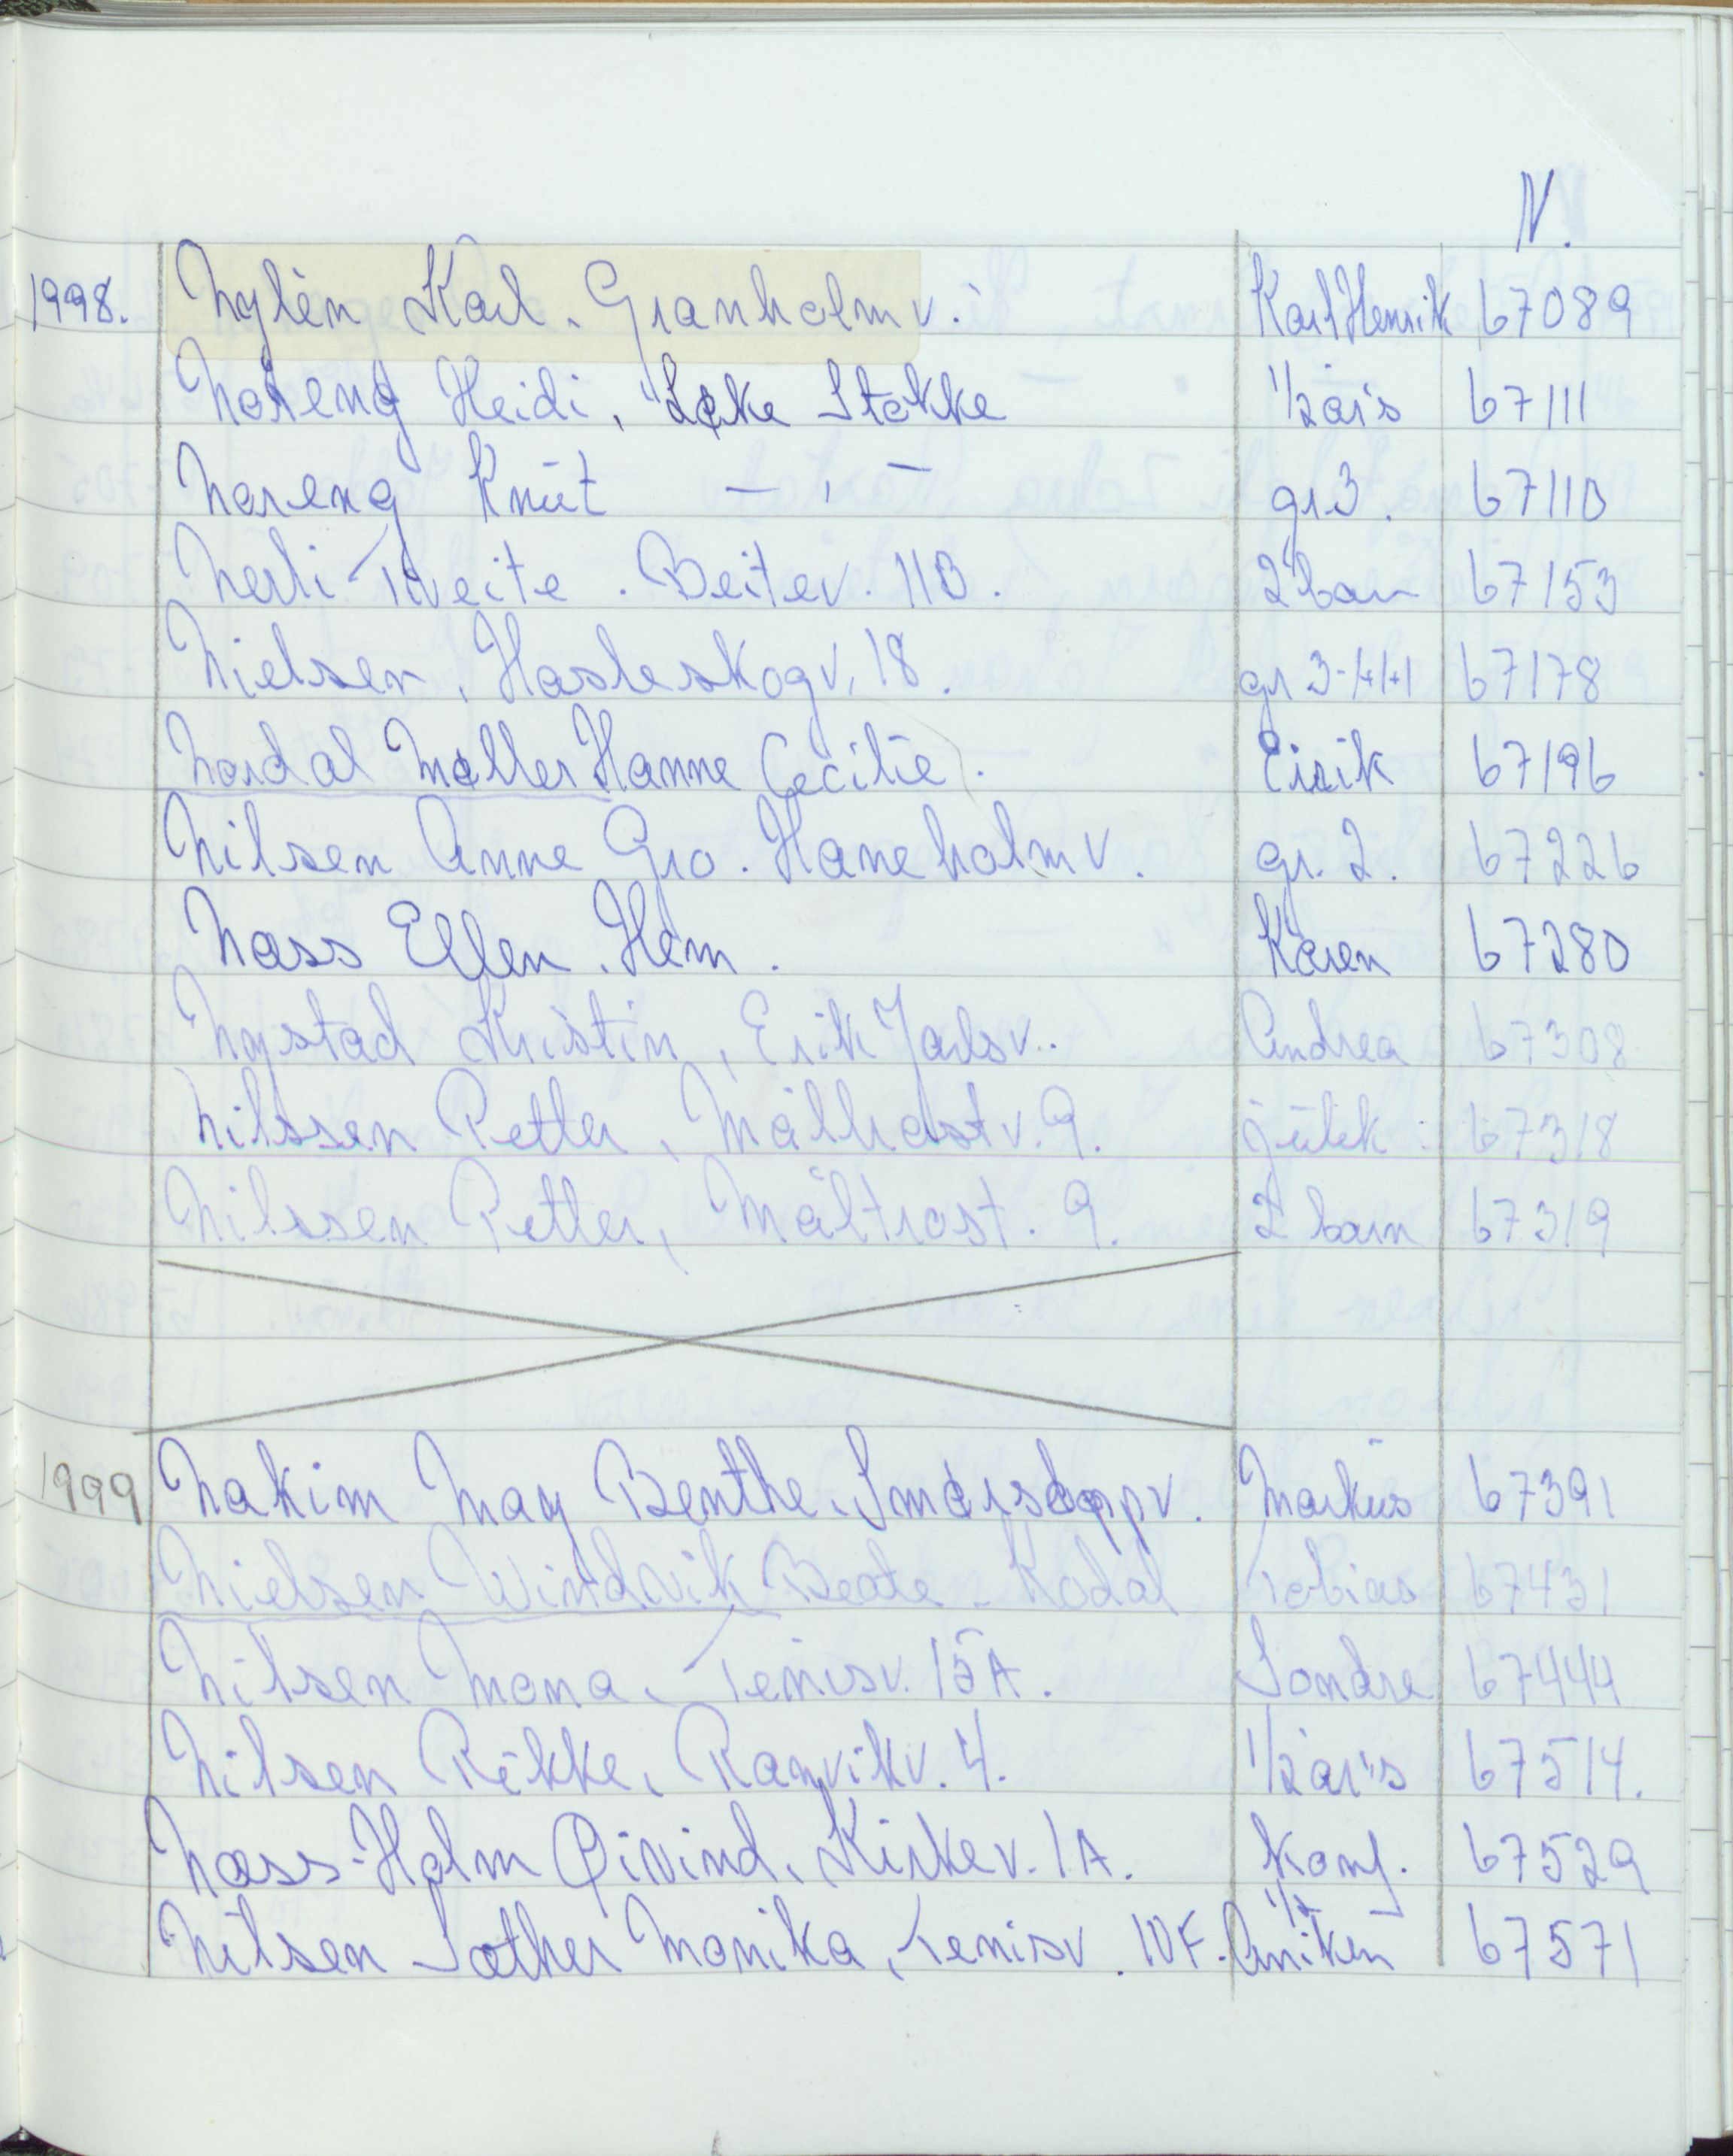 N.
1998. Nylèn Karl. Granholmv. Karl Henrik 67089
Noreng Heidi, Løke Stokke 1/2 år's 67111
Noreng Knut — , — gr 3. 67110
Nesli-Tveite. Beitev. 11B. 2 barn 67153
Nielsen, Hasleskogv. 18. gr 3-1+1+1 67178
Nordal Møller Hanne Cecilie. Eirik 67196
Nilsen Anne Gro. Haneholmv. gr. 2. 67226
Næss Ellen. Hem. Karen 67280
Nystad Kristin, Erik Jarlsv.. Andrea 67308
Nilssen Petter, Måltrostv. 9. julek: 67318
Nilssen Petter, Måltrost. 9. 2 barn 67319
1999 Nakim May Benthe. Markus 67391
Nielsen Windvik Beate. Kodal Tobias 67431
Nilsen Mona. Tenisv. 15A. Sondre 67444
Nilsen Rikke, Ranvikv. 4. 1/2 år's 67514.
Næss-Holm Øivind, Kirkev. 1A. Konf. 67529
Nilsen Sæther Monika, Tenisv. 10F. 1/2 Aniken 67571